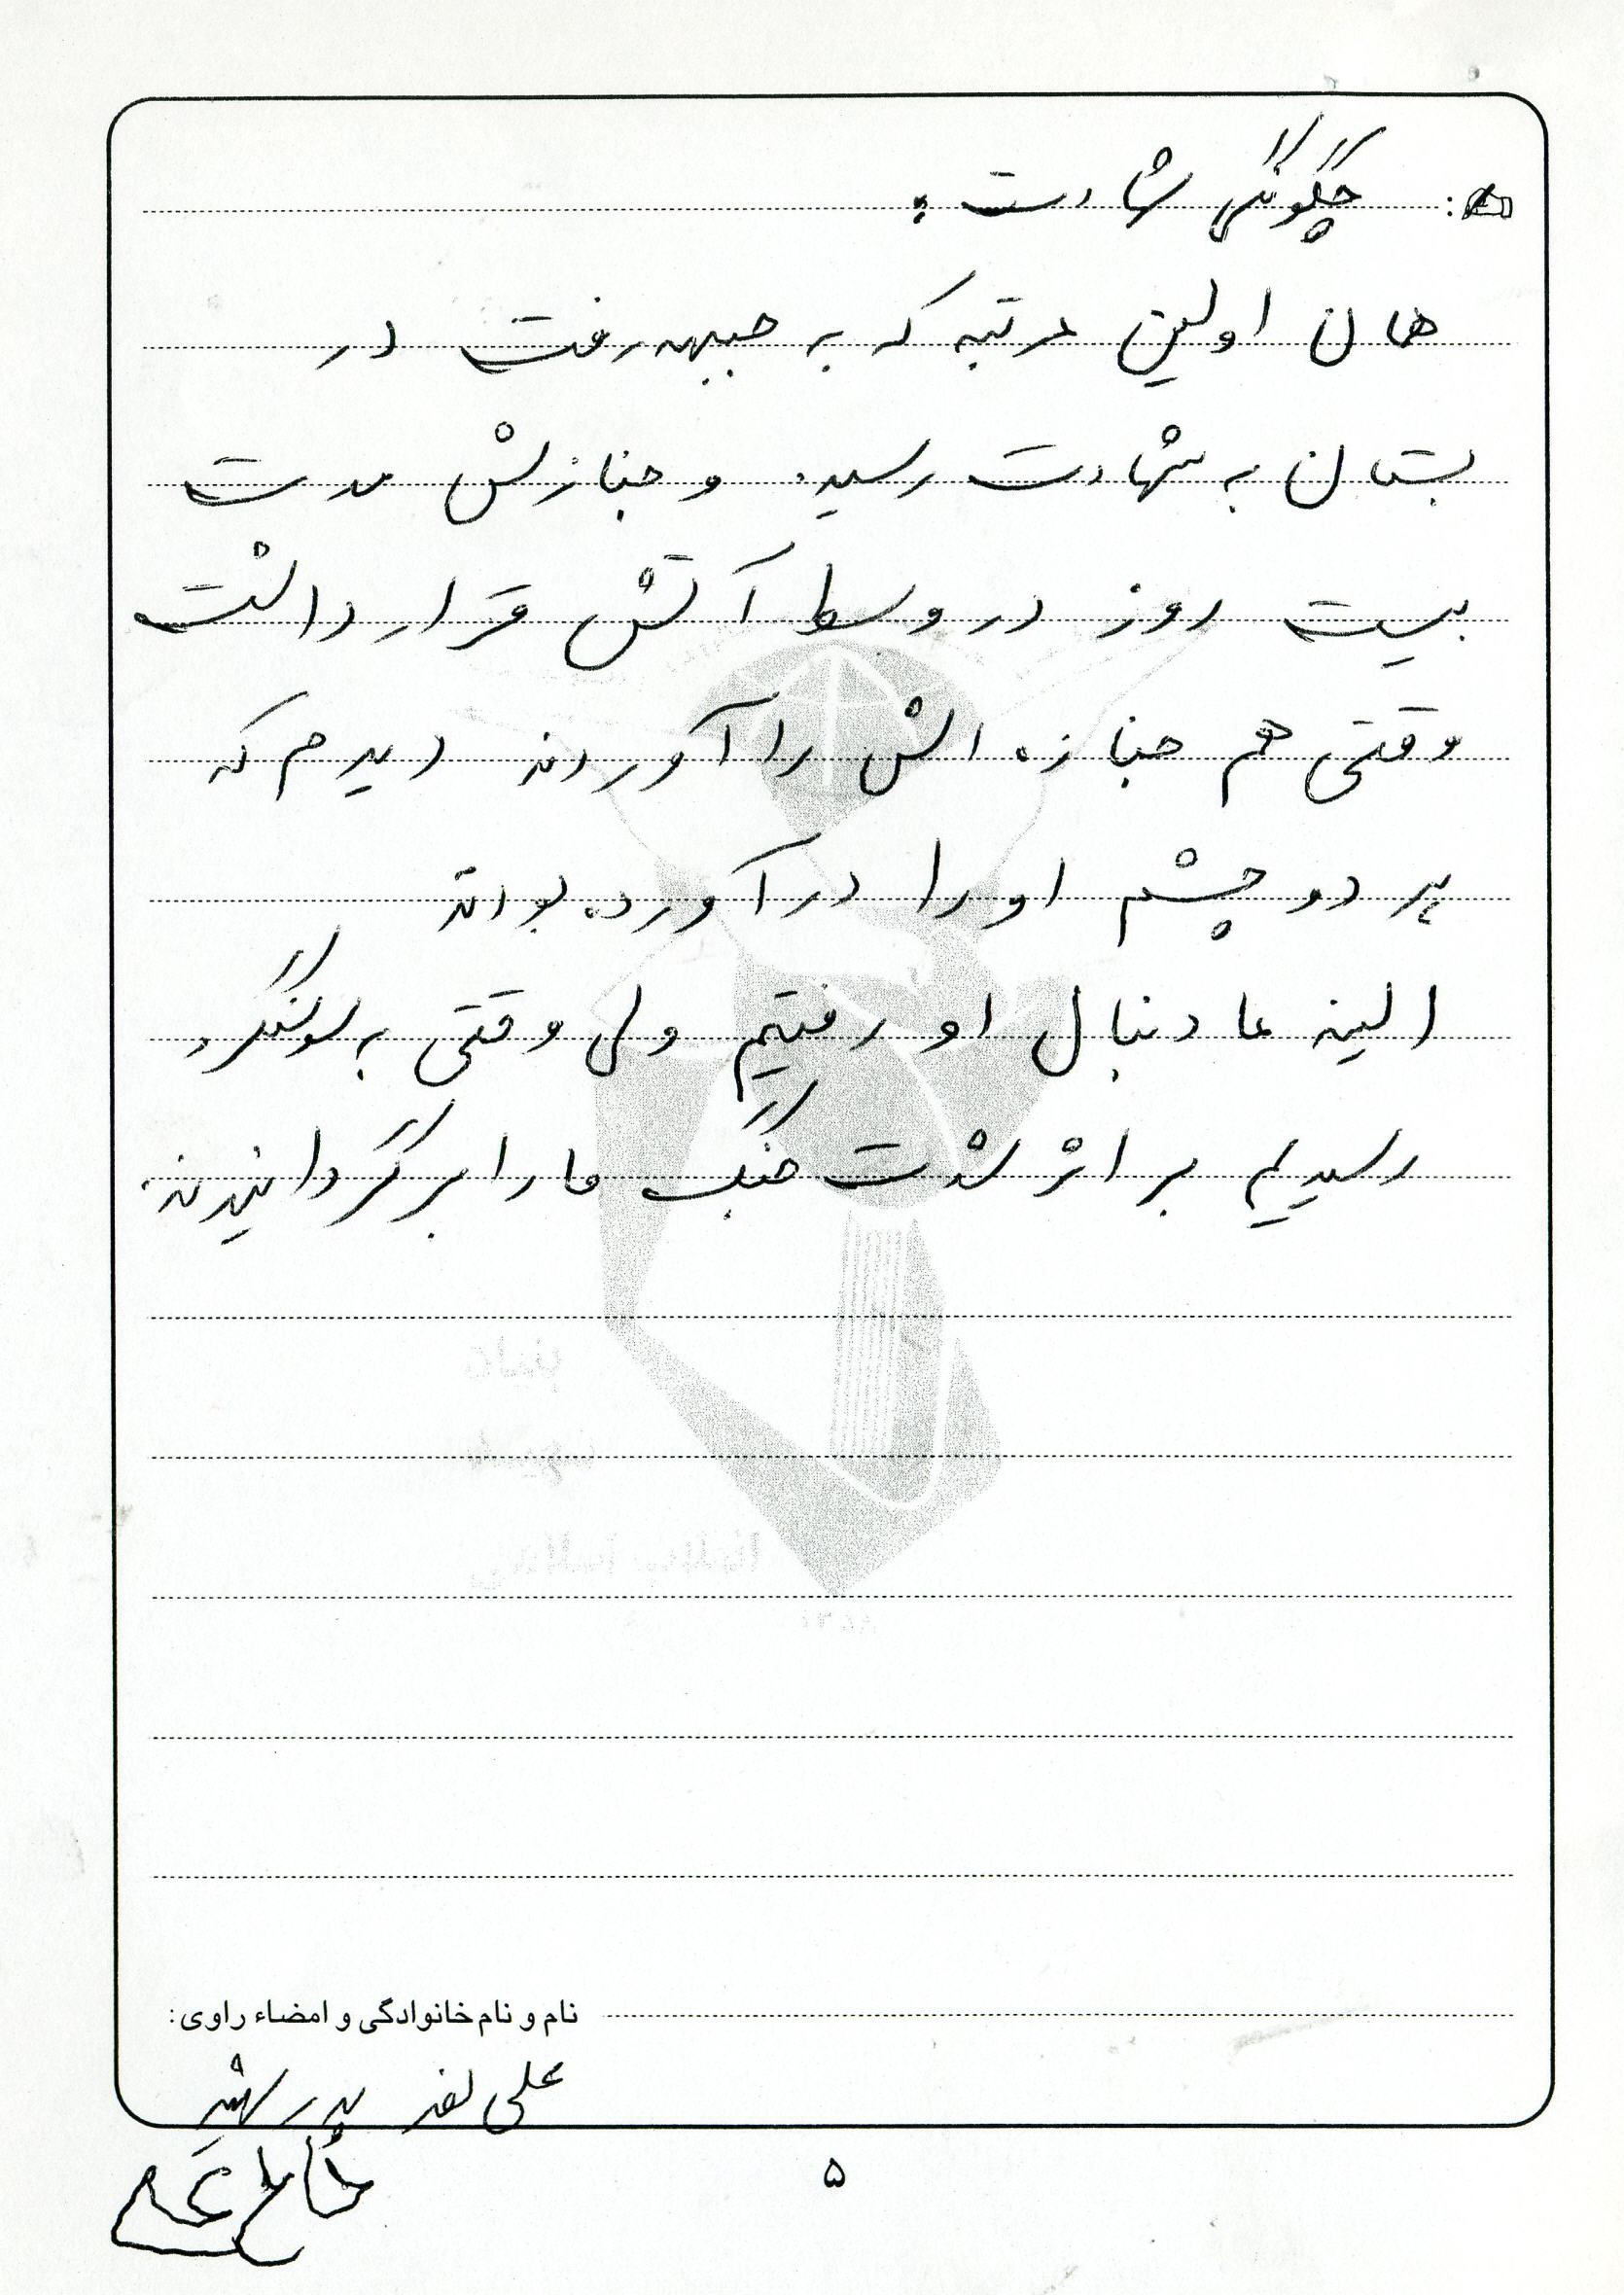 چگونگی شهادت:
همان اولین مرتبه که به جبهه رفت در
بستان به شهادت رسید. و جنازش مدت
بیست روز در وسط آتش قرار داشت
وقتی هم جنازه اش را آوردند دیدم که
هر دو چشم او را در آورده بودند
البته ما دنبال او رفتیم ولی وقتی به سوسنگرد
رسیدیم بر اثر شدت جنگ ما را برگردانیدند.
نام و نام خانوادگی و امضاء راوی:
علی پدر شهید
۵